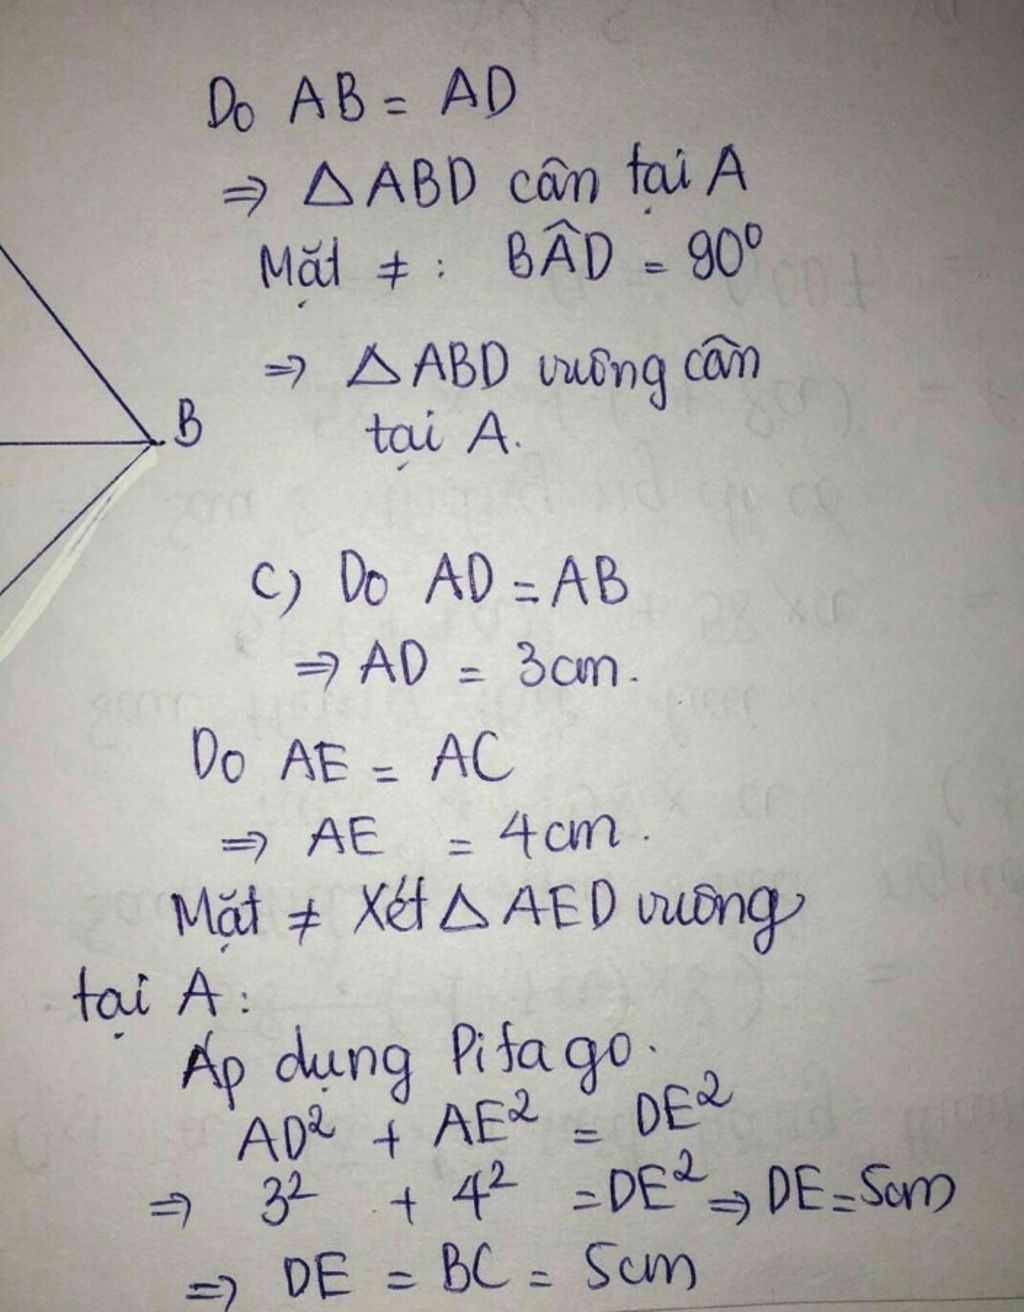 Do AB = AD
⇒ △ABD cân tại A
Mặt ≠ : BÂD = 90⁰
⇒ △ABD vuông cân
tại A.
B
c) Do AD = AB
⇒ AD = 3cm.
Do AE = AC
⇒ AE = 4cm.
Mặt ≠ Xét △AED vuông
tại A:
Áp dụng Pitago.
AD² + AE² = DE²
⇒ 3² + 4² = DE² ⇒ DE = 5cm
⇒ DE = BC = 5cm